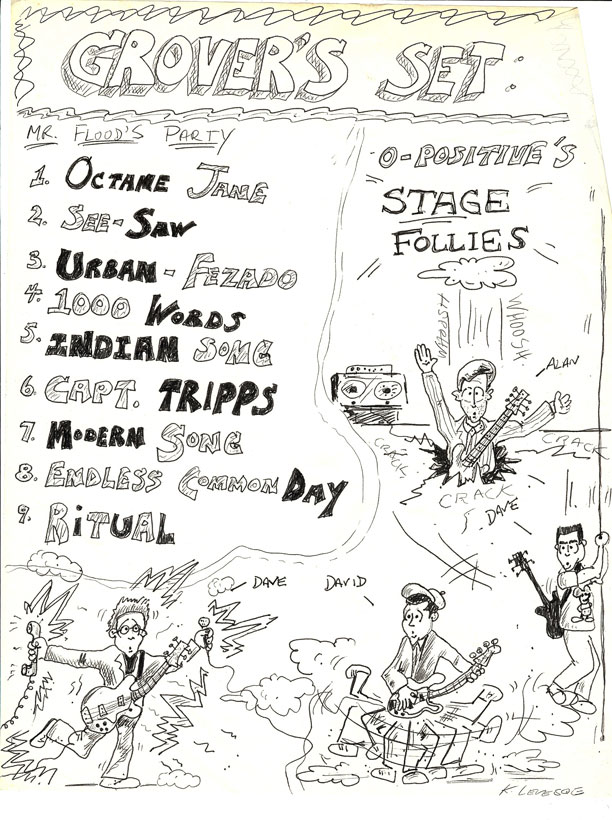 GROVER'S SET
MR. FLOOD'S PARTY
1. OCTANE JANE
2. SEE-SAW
3. URBAN - FEZADO
4. 1000 WORDS
5. INDIAN SONG
6. CAPT. TRIPPS
7. MODERN SONG
8. ENDLESS COMMON DAY
9. RITUAL
O-POSITIVE'S
STAGE
FOLLIES
WHOOSH
WHOOSH
ALAN
CRACK
CRACK
CRACK
DAVE
DAVE
DAVID